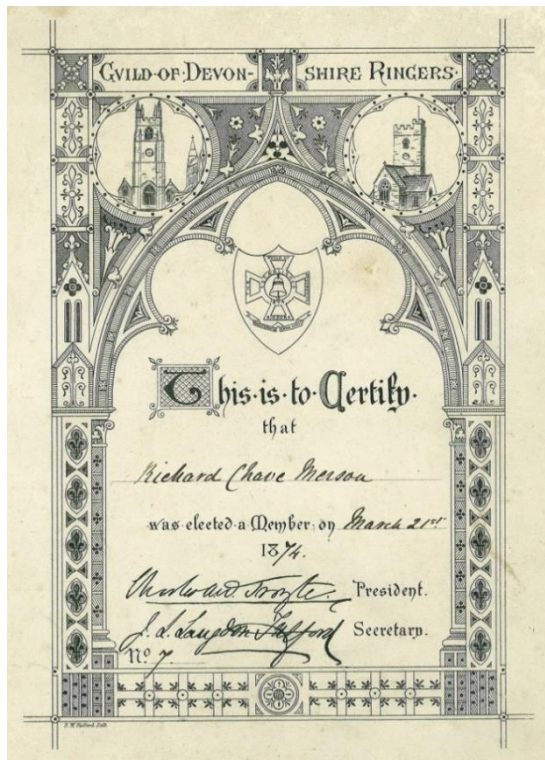 GVILD·OF·DEVON-SHIRE RINGERS·
This·is·to·Certify·
that
Richard Chave Merson
was·elected·a·Member·on March 21st
1874.
Troyte. President.
J. L. Langdon Fulford Secretary.
No. 7